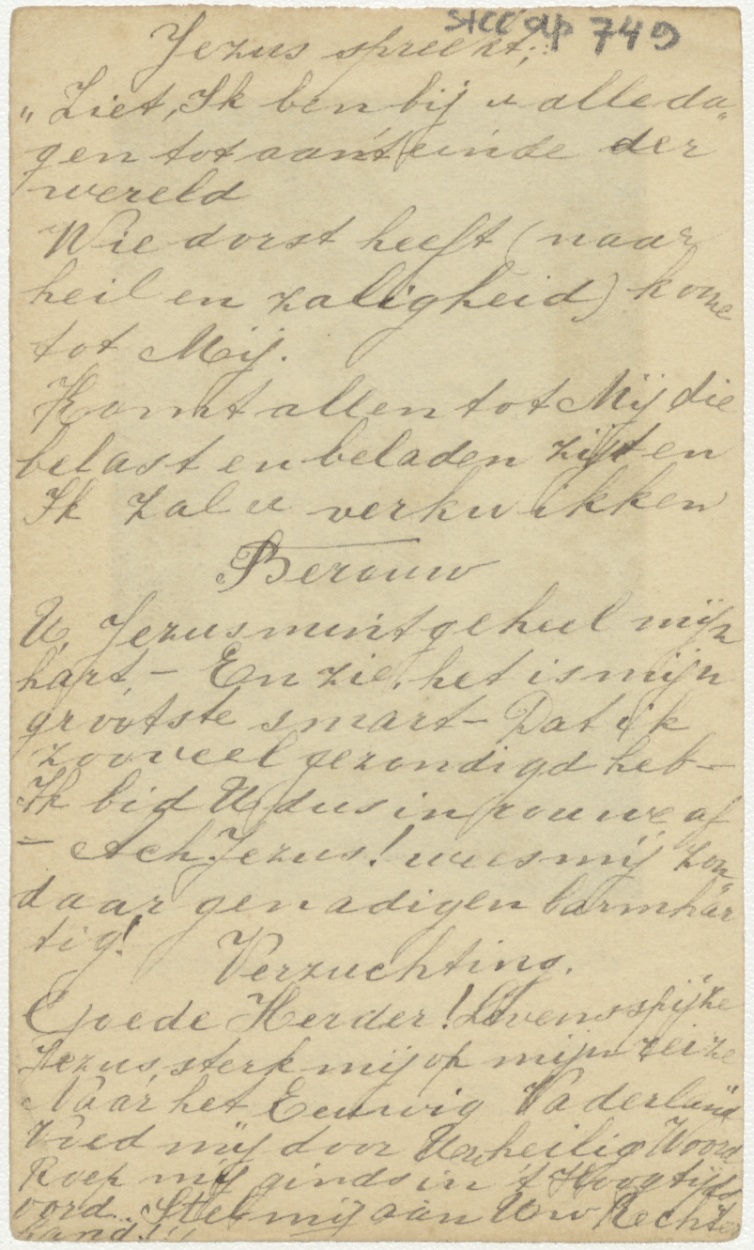 stccap 749
Jezus spreekt;
„Ziet, Ik ben bij u alle da„
gen tot aan 't einde der
wereld
Wie dorst heeft (naar
heil en zaligheid) kome
tot Mij.
Komt allen tot Mij die
belast en beladen zijt en
Ik zal u verkwikken
Berouw
U, Jezus mint geheel mijn
hart, – En zie, het is mijn
grootste smart – Dat ik
zooveel gezondigd heb –
Ik bid U dus in rouwe af
– Ach Jezus! wees mij zon„
daar genadig en barmhar
tig!
Verzuchting.
Goede Herder! Levensspijze
Jezus sterk mij op mijn reize
Naar het Eeuwig Vaderland
Voed mij door Uw heilig Woord
Roep mij ginds in 't Hoogtijds
oord. Stel mij aan Uw Rechter
hand!!!